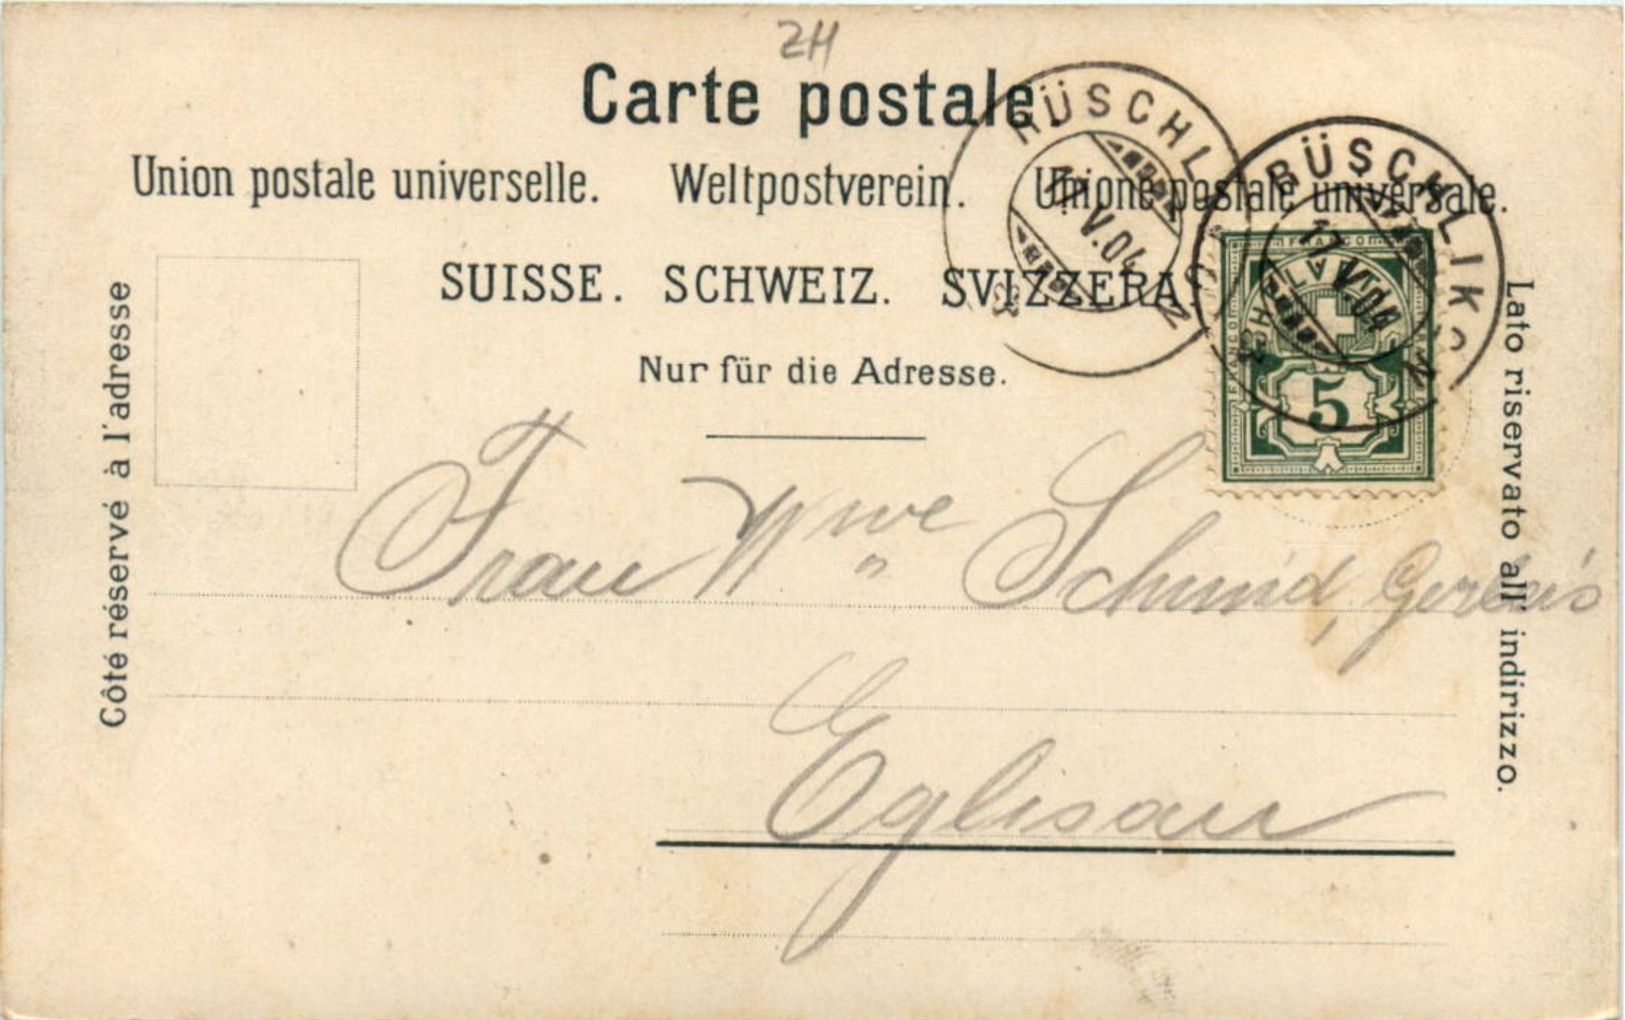 ZH
Carte postale.
Union postale universelle. Weltpostverein. Unione postale universale.
SUISSE. SCHWEIZ. SVIZZERA.
Nur für die Adresse.
Côté réservé à l'adresse
Lato riservato all' indirizzo.
RÜSCHLIKON
17.V.04
RÜSCHLIKON
17.V.04
FRANCO
HELVETIA
5
Frau Wwe Schmid, Gerbers
Eglisau